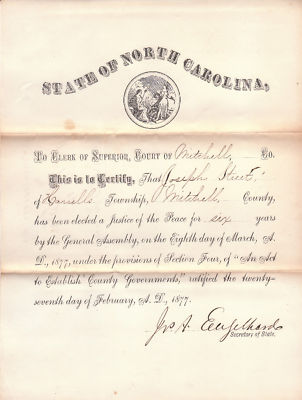 STATE OF NORTH CAROLINA,
To Clerk of Superior, Court of Mitchell, Co.
This is to Certify, That Joseph Street,
of Harrells Township, Mitchell County,
has been elected a Justice of the Peace for six years
by the General Assembly, on the Eighth day of March, A.
D., 1877, under the provisions of Section Four, of "An Act
to Establish County Governments," ratified the twenty-
seventh day of February, A. D., 1877.
Jos A. Engelhard
Secretary of State.